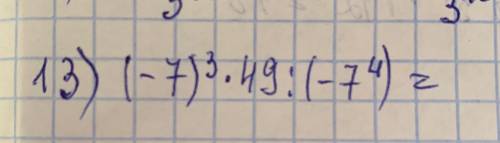 13) (-7)³·49:(-7⁴)=